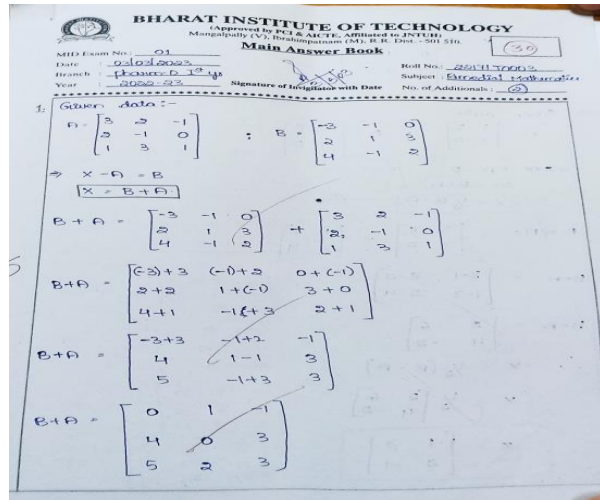 BHARAT INSTITUTE OF TECHNOLOGY
(Approved by PCI & AICTE, Affiliated to JNTUH)
Mangalpally (V), Ibrahimpatnam (M), R.R. Dist. - 501 510.
Main Answer Book
30
MID Exam No.: 01
Date : 03/03/2023
Roll No.:
Branch : Pharm.D Ist
Subject : Remedial Mathematics
Year : 2022-23
Signature of Invigilator with Date
No. of Additionals : 2
1. Given data :-
A = [3 2 -1
2 -1 0
1 3 1] ; B = [-3 -1 0
2 1 3
4 -1 2]
⇒ X - A = B
X = B + A
B + A = [-3 -1 0
2 1 3
4 -1 2] + [3 2 -1
2 -1 0
1 3 1]
5
B+A = [(-3)+3 (-1)+2 0+(-1)
2+2 1+(-1) 3+0
4+1 -1+3 2+1]
B+A = [-3+3 -1+2 -1
4 1-1 3
5 -1+3 3]
B+A = [0 1 -1
4 0 3
5 2 3]